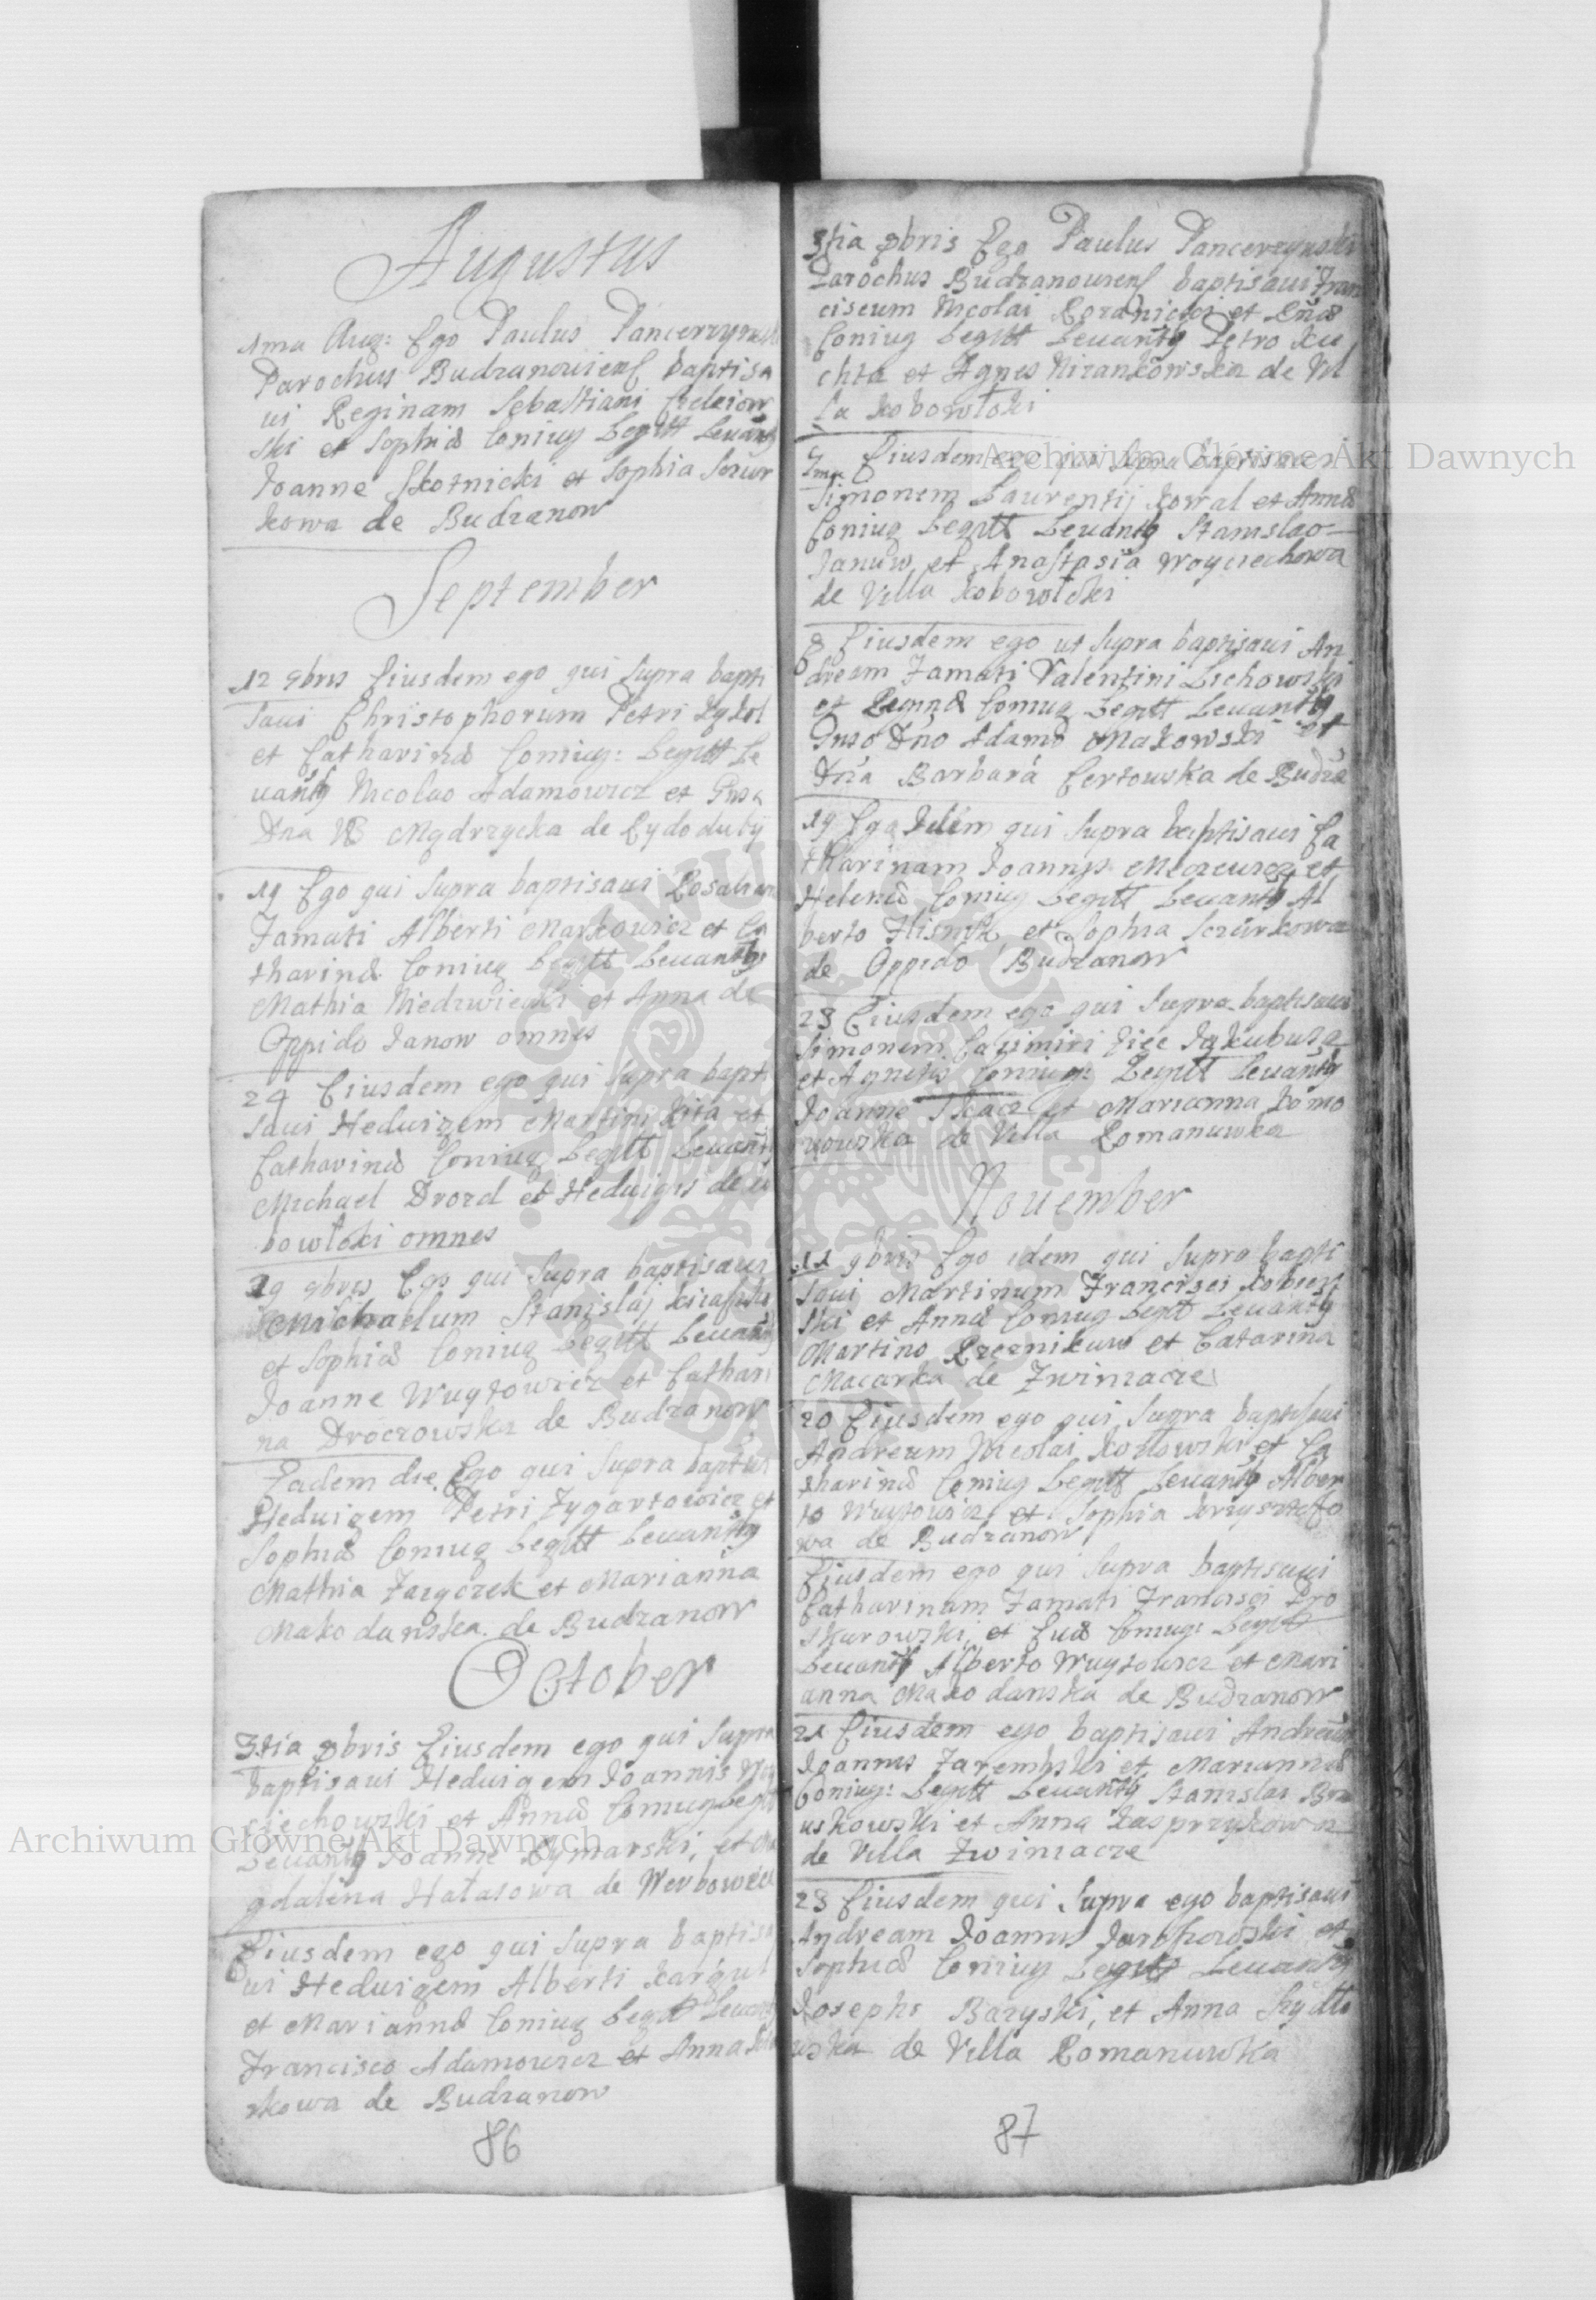 Augustus
1ma Aug: Ego Paulus Pancerzynski
Parochus Budzanoviens baptisa
ui Reginam Sebastiani
ski et Sophiæ Coniug Legitt Leuantg
Joanne Skotnicki et Sophia Szwr
kowa de Budzanow
September
12 9bris Eiusdem ego qui supra bapti
saui Christophorum Petri
et Catharinæ Coniug: Legitt Le
uantg Nicolao Adamowicz et Gnsa
Dna Mądrzycka de
19 Ego qui supra baptisaui Rosaliam
Famati Alberti Markowicz et Ca
tharinæ Coniug Legitt Leuantg
Mathia Niedzwiecki et Anna de
Oppido Janow omnes
24 Eiusdem ego qui supra bapti
saui Heduigem Martini Kita et
Catharinæ Coniug Legitt Leuantg
Michael Drozd et Heduigis de
bowłoki omnes
29 9bris Ego qui supra baptisaui
Michaelum Stanislaj
et Sophiæ Coniug Legitt Leuantg
Joanne Wuytowicz et Cathari
na Droczowska de Budzanow
Eadem die Ego qui supra baptisaui
Heduigem Petri Zygartowicz et
Sophiæ Coniug Legitt Leuantg
Mathia Zaięczek et Marianna
Makodanska de Budzanow
October
3tia 8bris Eiusdem ego qui supra
baptisaui Heduigem Joannis Woy
ciechowski et Annæ Coniug Legitt
Leuantg Joanne Rymarski, et Ma
gdalena Hałasowa de Werbowce
Eiusdem ego qui supra baptisa
ui Heduigem Alberti Kargul
et Mariannæ Coniug Legitt Leuantg
Francisco Adamowicz et Anna
rkowa de Budzanow
86
3tia 8bris Ego Paulus Pancerzynski
Parochus Budzanouiens baptisaui Fran
ciscum Nicolai et
Coniug Legitt Leuantg Petro Ku
chta et Agnes Mirankowska de Vil
la Kobowłoki
7ma Eiusdem ego qui supra baptisaui
Simonem Laurentij Kowal et Annæ
Coniug Legitt Leuantg Stanislao
Januw et Anastasia Woyciechowa
de Villa Kobowłoki
8 Eiusdem ego ut supra baptisaui An
dream Famati Valentini Lichowski
et Coniug Legitt Leuantg
Gnso Dno Adamo Makowski et
Dna Barbara Certowska de Budza
19 Ego Idem qui supra baptisaui Ca
tharinam Joannis et
Helenæ Coniug Legitt Leuantg Al
berto et Sophia Szczurkowa
de Oppido Budzanow
23 Eiusdem ego qui supra baptisaui
Simonem Casimiri
et Agnetis Coniug: Legitt Leuantg
Joanne Tkacz et Marianna Romo
nowska de Villa Romanuwka
Nouember
11 9bris Ego idem qui supra bapti
saui Martinum Francisci
ski et Annæ Coniug Legitt Leuantg
Martino Rzeznikuw et Catarina
Macarka de Zwiniacze
20 Eiusdem ego qui supra baptisaui
Andream Nicolai Kozłowski et Ca
tharinæ Coniug Legitt Leuantg Alber
to Wuytowicz et Sophia Krzysztofo
wa de Budzanow
Eiusdem ego qui supra baptisaui
Catharinam Famati Francisci Pro
skurowski, et Euæ Coniug: Legitt
Leuantg Alberto Wuytowicz et Mari
anna Makodanska de Budzanow
21 Eiusdem ego baptisaui Andream
Joannis Zarembski et Mariannæ
Coniug: Legitt Leuantg Stanislai
uskowski et Anna Kasprzykowa
de Villa Zwiniacze
23 Eiusdem qui supra ego baptisaui
Andream Joannis et
Sophiæ Coniug Legitt Leuantg
Josephi Baryski, et Anna Szydło
wska de Villa Romanuwka
87
Archiwum Główne Akt Dawnych
Archiwum Główne Akt Dawnych